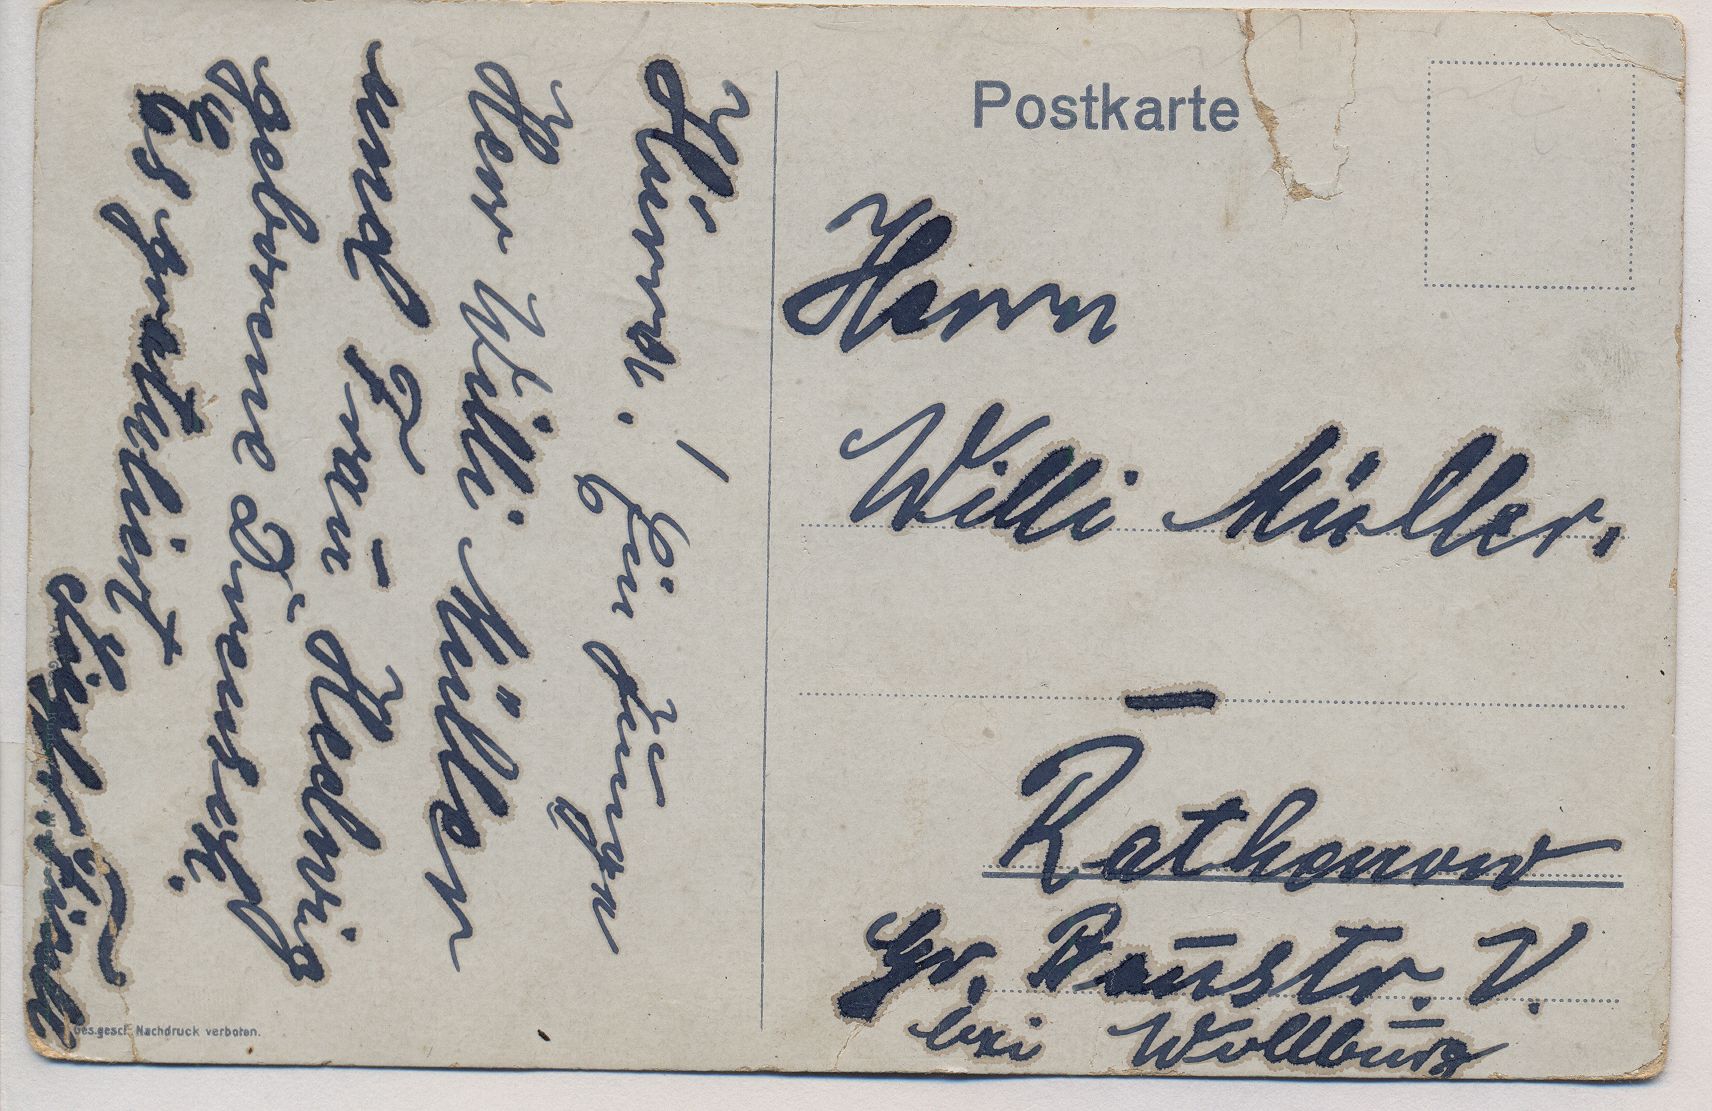 Hurra! Ein Junge
Herr Willi Müller
und Frau Hedwig
geborene Drensek.
Es gratuliert
Postkarte
Herrn
Willi Müller.
Rathenow
Gr. Baustr. V.
bei Wollburg
Ges.gesch. Nachdruck verboten.